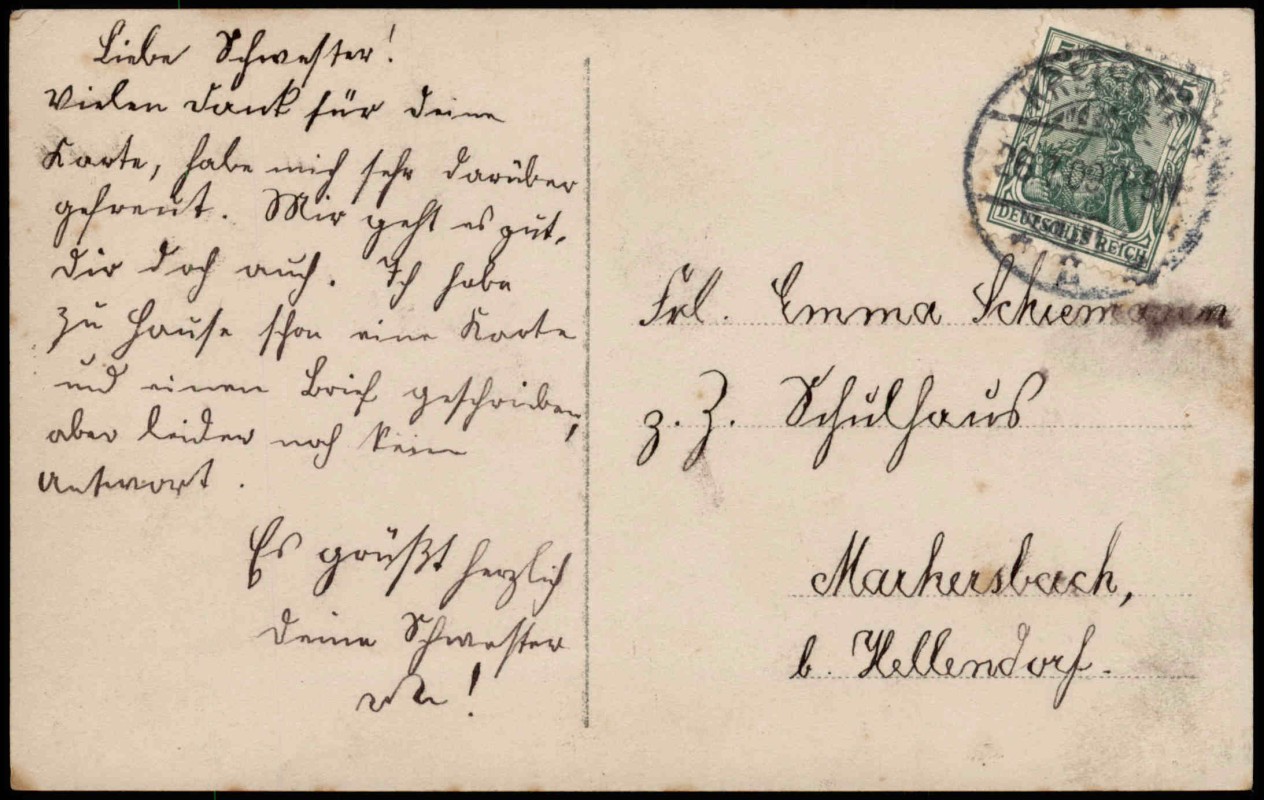 Liebe Schwester!
Vielen Dank für deine
Karte, habe mich sehr darüber
gefreut. Mir geht es gut,
dir doch auch. Ich habe
zu Hause schon eine Karte
und einen Brief geschrieben,
aber leider noch keine
Antwort.
Es grüßt herzlich
deine Schwester
5 5
DEUTSCHES REICH
Frl. Emma Schiemann
z. Z. Schulhaus
Markersbach,
b. Hellendorf.